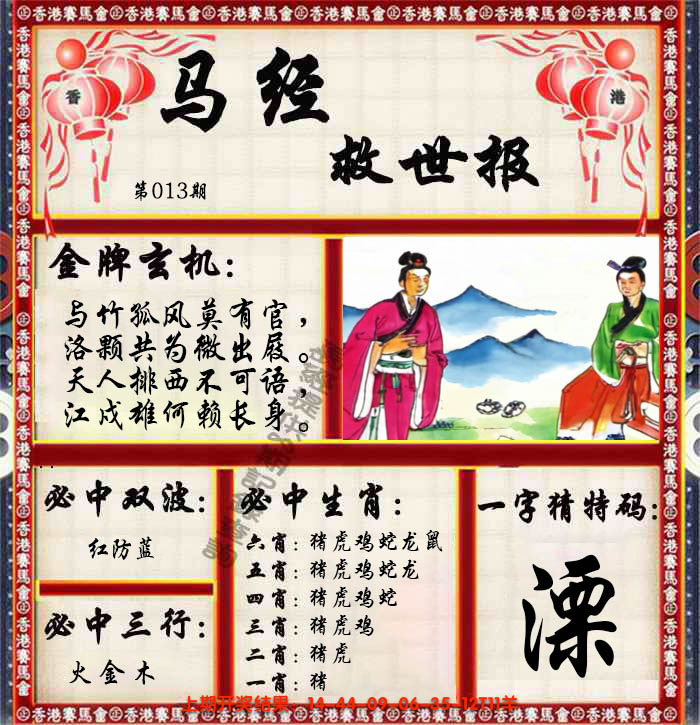 香港賽馬會
香
港
马经
救世报
第013期
金牌玄机：
与竹孤风莫有官，
洛颗共为微出屐。
天人排西不可语，
江戍雄何赖长身。
必中双波：
红防蓝
必中三行：
火金木
必中生肖：
六肖：猪虎鸡蛇龙鼠
五肖：猪虎鸡蛇龙
四肖：猪虎鸡蛇
三肖：猪虎鸡
二肖：猪虎
一肖：猪
一字猜特码：
溧
上期开奖结果：14-44-09-06-35-12T11羊